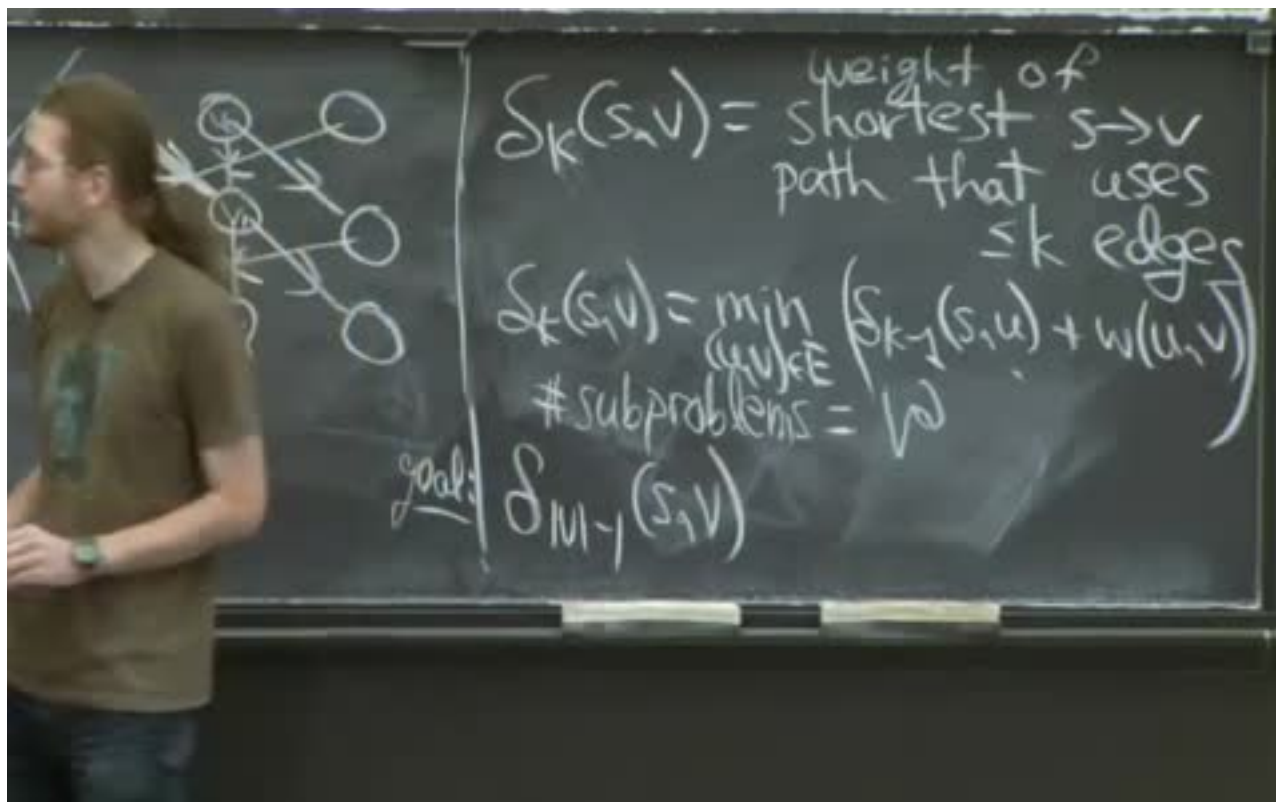 δₖ(s,v) = weight of
shortest s→v
path that uses
≤k edges
δₖ(s,v) = min (δₖ₋₁(s,u) + w(u,v))
(u,v)∈E
#subproblems = V
goal: δ|V|-1(s,v)